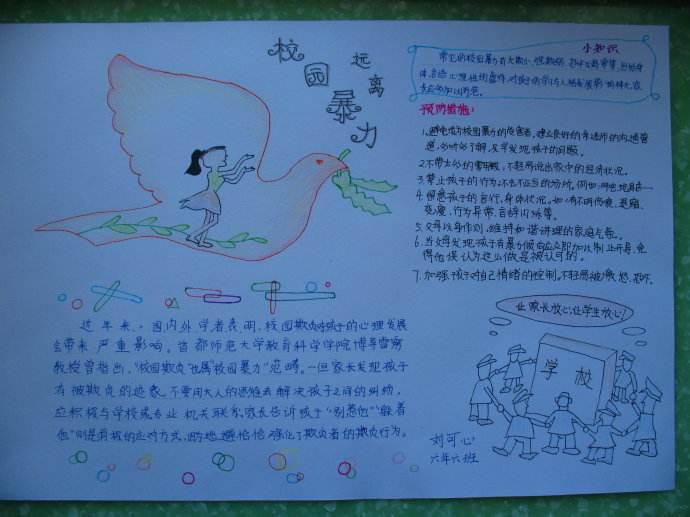 远离
校园暴力
小知识
预防措施：
1、避免成为校园暴力的受害者，建立良好的与老师的沟通管
道，多听多了解，及早发现孩子的问题。
2、不带太多的零用钱，不轻易说出家中的经济状况。
3、禁止孩子的行为，不去不正当的场所，例如
4、留意孩子的言行、身体状况，如：有不明伤痕、
行为异常、言辞闪烁等。
5、父母以身作则，维持和谐讲理的家庭气氛。
6、当父母发现孩子有暴力倾向应立即加以制止开导，免
得他误认为这么做是被认可的。
7、加强孩子对自己情绪的控制，不轻易被激怒
近年来，国内外学者表明，校园欺负对孩子的心理发展
会带来严重影响。首都师范大学教育科学学院博导雷雳
教授曾指出，“校园欺负”也属“校园暴力”范畴。一但家长发现孩子
有被欺负的迹象，不要用大人的思维去解决孩子之间的纠纷，
应积极与学校或专业机关联系。家长告诉孩子“别惹他”“躲着
他”则是消极的应对方式，因为逃避恰恰强化了欺负者的欺负行为。
让家长放心，让学生放心！
学校
刘可心
六年六班